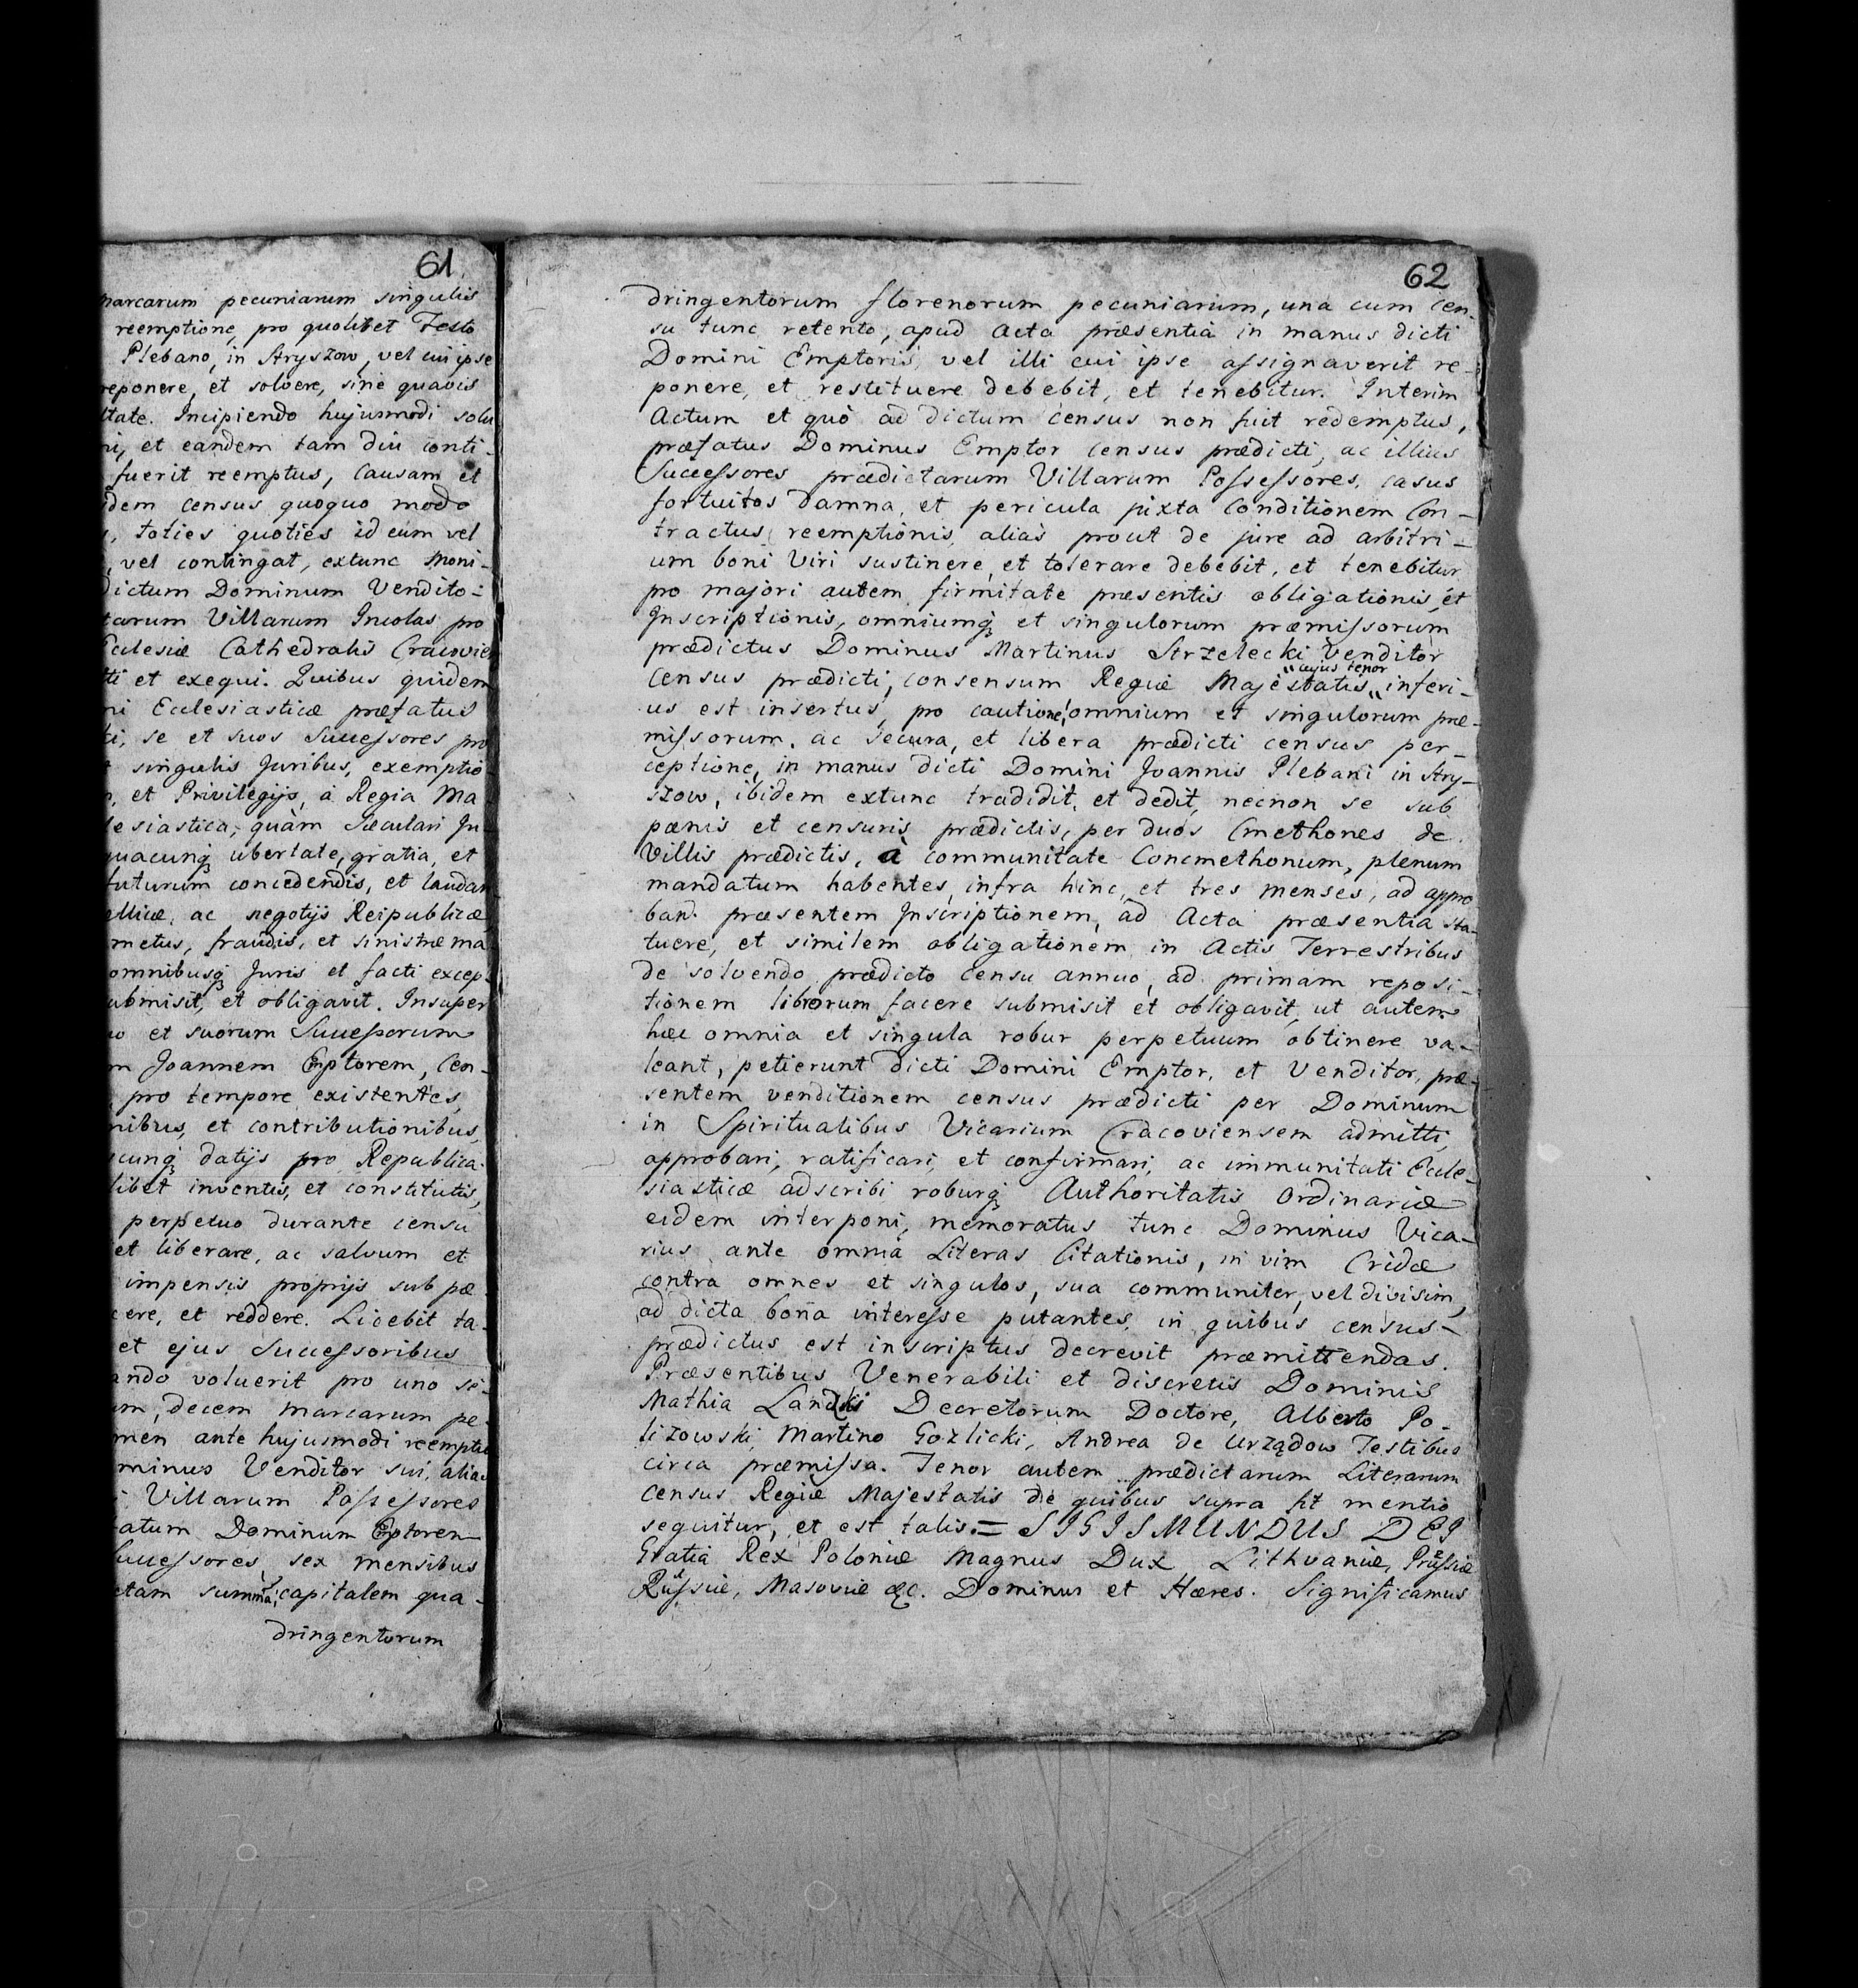 61
marcarum pecuniarum singulis
reemptione, pro quolibet Festo
Plebano, in Stryszow, vel cui ipse
reponere, et solvere, sine quavis
ltate. Incipiendo hujusmodi solu
ni, et eandem tam diu conti-
fuerit reemptus, causam et
idem census quoquo modo
, toties quoties id eum vel
, vel contingat, extunc Moni-
Dictum Dominum Vendito-
tarum Villarum Incolas pro
Ecclesiæ Cathedralis Cracovien
ti et exequi. Quibus quidem
ni Ecclesiasticæ præfatus
ti, se et suos Successores pro
t singulis Juribus, exemptio
, et Privilegijs, à Regia Ma
lesiastica, quàm Sæculari Ju-
quacunqȝ ubertate, gratia, et
futurum concedendis, et laudan
ellicæ, ac negotijs Reipublicæ
metus, fraudis, et sinistræ ma
omnibusqȝ Juris et facti excep-
ubmisit, et obligavit. Insuper
uo et suorum Successorum
m Joannem Emptorem, Cen-
pro tempore existentes,
nibus, et contributionibus,
cunqȝ datijs pro Republica
libet inventis, et constitutis,
perpetuo durante censu
et liberare, ac salvum et
impensis proprijs sub pæ
cere, et reddere. Licebit ta-
et ejus Successoribus
ando voluerit pro uno si-
um, decem marcarum pe-
men ante hujusmodi reemptio
minus Venditor sui, alias
i Villarum Possessores
atum Dominum Emptorem
Successores, sex mensibus
ctam summã capitalem qua-
dringentorum
62
dringentorum florenorum pecuniarum, una cum Cen-
su tunc retento, apud Acta præsentia in manus dicti
Domini Emptoris, vel illi cui ipse assignaverit re-
ponere, et restituere debebit, et tenebitur. Interim
Actum et quò ad dictum census non fuit redemptus,
præfatus Dominus Emptor Census prædicti, ac illius
Successores prædictarum Villarum Possessores, casus
fortuitos damna, et pericula juxta Conditionem Con-
tractus reemptionis, alias prout de jure ad arbitri-
um boni Viri sustinere, et tolerare debebit, et tenebitur
pro majori autem firmitate præsentis obligationis, et
Inscriptionis, omniumqȝ et singulorum præmissorum
prædictus Dominus Martinus Strzelecki Venditor
Census prædicti, consensum Regiæ Majestatis „cujus tenor„ inferi-
us est insertus, pro cautione, omnium et singulorum præ-
missorum, ac secura, et libera prædicti census per-
ceptione, in manus dicti Domini Joannis Plebani in Stry-
szow, ibidem extunc tradidit, et dedit, necnon se sub
pænis et censuris prædictis, per duos Cmethones de
Villis prædictis, à communitate Concmethonum, plenum
mandatum habentes, infra hinc, et tres menses, ad appro
band. præsentem Inscriptionem, ad Acta præsentia sta-
tuere, et similem obligationem in Actis Terrestribus
de solvendo prædicto Censu annuo, ad primam reposi-
tionem librorum facere submisit et obligavit, ut autem
hæc omnia et singula robur perpetuum obtinere va-
leant, petierunt dicti Domini Emptor, et Venditor, præ-
sentem venditionem census prædicti per Dominum
in Spiritualibus Vicarium Cracoviensem admitti,
approbari, ratificari, et confirmari, ac immunitati Eccle-
siasticæ adscribi roburqȝ Authoritatis Ordinariæ
eidem interponi, memoratus tunc Dominus Vica-
rius ante omnia Literas Citationis, in vim Cridæ
contra omnes et singulos, sua communiter, vel divisim,
ad dicta bona interesse putantes, in quibus census-
prædictus est inscriptus decrevit præmittendas.
Præsentibus Venerabili et discretis Dominis
Mathia Landzki Decretorum Doctore, Alberto Po-
lizowski, Martino Gozlicki, Andrea de Urządow Testibus
circa præmissa. Tenor autem prædictarum Literarum
Census Regiæ Majestatis de quibus supra fit mentio
sequitur, et est talis. = SIGISMUNDUS DEI
Gratia Rex Poloniæ Magnus Dux Lithvaniæ, Prussiæ
Russiæ, Masoviæ &c. Dominus et Hæres. Significamus